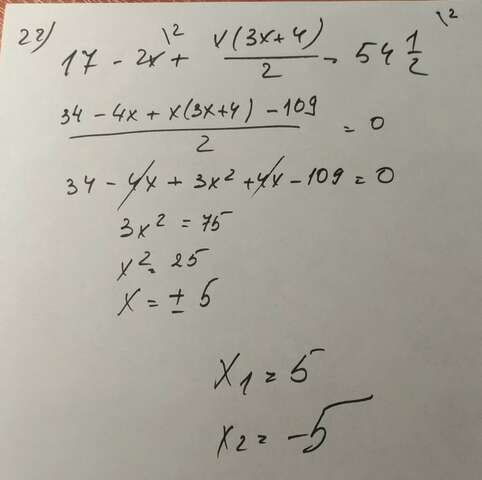 22) 17 - 2x\2 + x(3x+4)/2 = 54 1/2 \2
34 - 4x + x(3x+4) - 109 / 2 = 0
34 - 4x + 3x² + 4x - 109 = 0
3x² = 75
x² = 25
x = ± 5
x1 = 5
x2 = -5